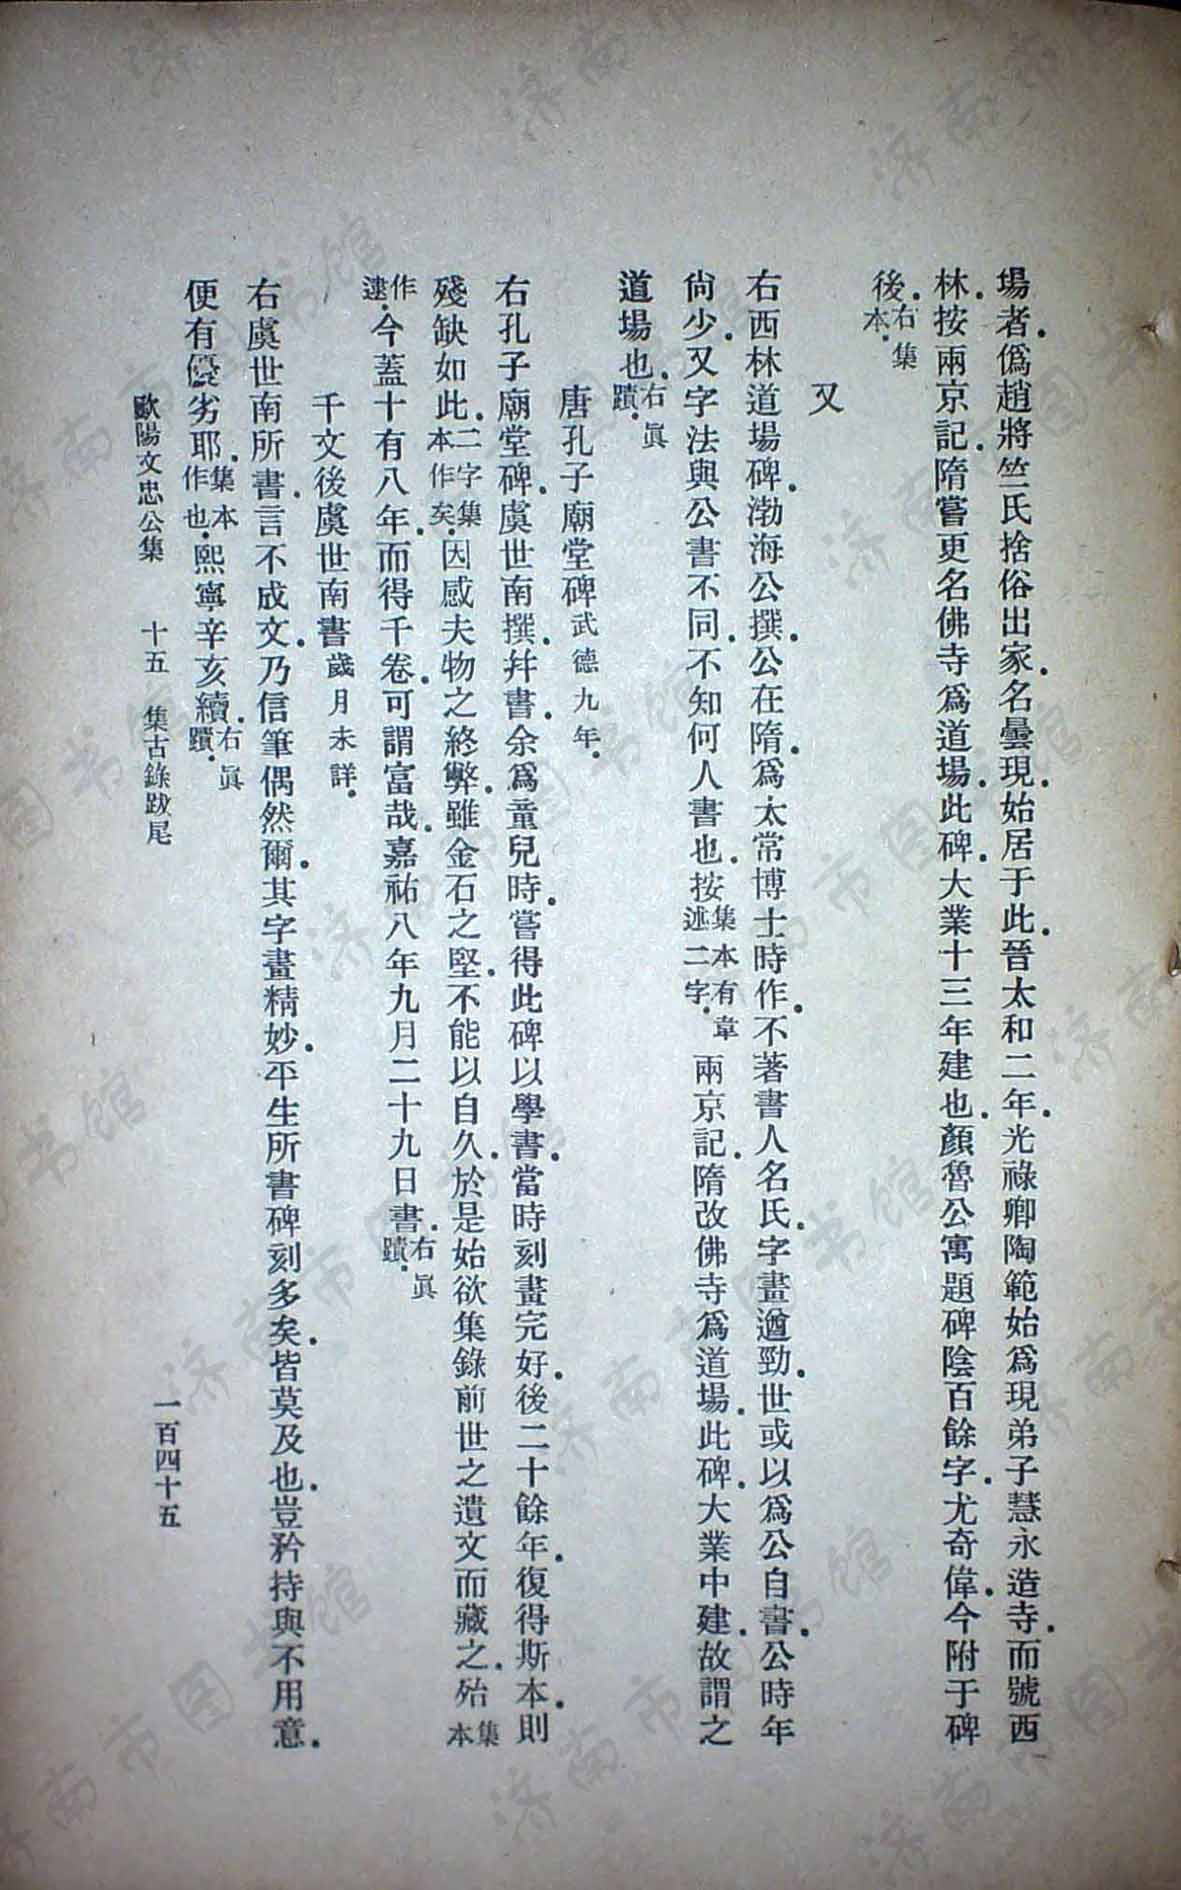 場者.僞趙將竺氏捨俗出家.名曇現.始居于此.晉太和二年.光祿卿陶範始爲現弟子慧永造寺.而號西
林.按兩京記.隋嘗更名佛寺爲道場.此碑.大業十三年建也.顏魯公寓題碑陰百餘字.尤奇偉.今附于碑
後.右集本.
又
右西林道場碑.渤海公撰.公在隋.爲太常博士時作.不著書人名氏.字畫遒勁.世或以爲公自書.公時年
尙少.又字法與公書不同.不知何人書也.按集本有韋述二字.兩京記.隋改佛寺爲道場.此碑.大業中建.故謂之
道場也.右眞蹟.
唐孔子廟堂碑武德九年.
右孔子廟堂碑.虞世南撰.幷書.余爲童兒時.嘗得此碑以學書.當時刻畫完好.後二十餘年.復得斯本.則
殘缺如此.二字集本作矣.因感夫物之終弊.雖金石之堅.不能以自久.於是始欲集錄前世之遺文而藏之.殆集本
作逮.今蓋十有八年.而得千卷.可謂富哉.嘉祐八年九月二十九日書.右眞蹟.
千文後虞世南書歲月未詳.
右虞世南所書.言不成文.乃信筆偶然爾.其字畫精妙.平生所書碑刻多矣.皆莫及也.豈矜持與不用意.
便有優劣耶.集本作也.熙寧辛亥續.右眞蹟.
歐陽文忠公集 十五 集古錄跋尾 一百四十五
济南市图书馆